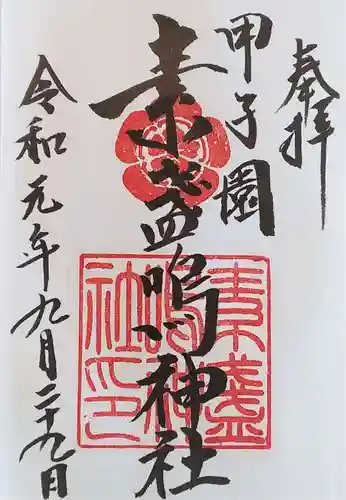 奉拝
甲子園
素盞嗚神社
令和元年九月二十九日
素盞
嗚神
社印